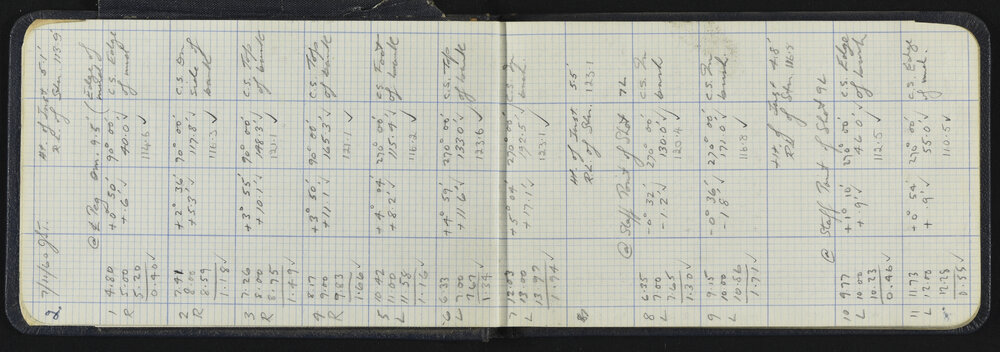 2. 7/11/60 Ht. of Inst. 5.1'
R.L. of Stn. 113.9'
@ ¢ Peg 9.5' (Edge of
1 4.80 +0° 50' 90° 00' C.S. Edge
R 5.00 +.6'✓ 40.0'✓ of mud
5.20 114.6 ✓
0.40 ✓
2 7.41 +2° 36' 90° 00' C.S. On
R 8.00 +5.3'✓ 117.8'✓ side of
8.59 116.3 ✓ bank
1.18 ✓
3 7.26 +3° 55' 90° 00' C.S. Top
R 8.00 +10.1'✓ 148.3'✓ of bank
8.75 121.1 ✓
1.49 ✓
4 8.17 +3° 50' 90° 00' C.S. Top
R 9.00 +11.1'✓ 165.3'✓ of bank
9.83 121.1 ✓
1.66 ✓
5 10.42 +4° 04' 270° 00' C.S. Foot
L 11.00 +8.2'✓ 115.4'✓ of bank
11.58 116.2 ✓
1.16 ✓
6 6.33 +4° 59' 270° 00' C.S. Top
L 7.00 +11.6'✓ 133.0'✓ of bank
7.67 123.6 ✓
1.34 ✓
7 12.03 +5° 04' 270° 00' C.S. In
L 13.00 +17.1'✓ 192.5'✓ bank
13.97 123.1 ✓
1.94 ✓
Ht. of Inst. 5.5'
RL of Stn. 123.1
@ Staff Point of Shot 7L
8 6.35 -0° 32' 270° 00' C.S. In
L 7.00 -1.2'✓ 130.0'✓ bank
7.65 123.4 ✓
1.30 ✓
9 9.15 -0° 36' 270° 00' C.S. In
L 10.00 -1.8'✓ 171.0'✓ bank
10.86 116.8 ✓
1.71 ✓
Ht. of Inst 4.8'
RL of Stn.
@ Staff Point of Shot 9L
10 9.77 +1° 10' 270° 00' C.S. Edge
L 10.00 +.9'✓ 46.0'✓ of bank
10.23 112.5 ✓
0.46 ✓
11 11.73 +0° 54' 270° 00' C.S. Edge
L 12.00 +.9'✓ 55.0'✓ of mud.
12.28 110.5 ✓
0.55 ✓